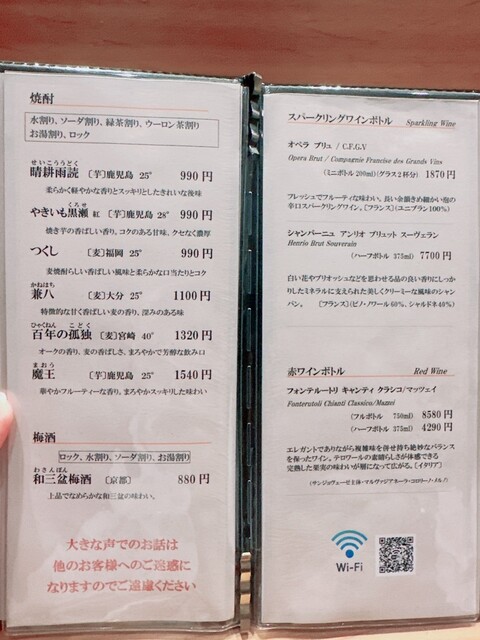 焼酎
水割り、ソーダ割り、緑茶割り、ウーロン茶割り
お湯割り、ロック
せいこううどく
晴耕雨読 〔芋〕鹿児島 25° 990円
柔らかく軽やかな香りとスッキリとしたきれいな後味
くろせ
やきいも黒瀬 紅 〔芋〕鹿児島 28° 990円
焼き芋の香ばしい香り、コクのある甘味、クセなく濃厚
つくし 〔麦〕福岡 25° 990円
麦焼酎らしい香ばしい風味と柔らかな口当たりとコク
かねはち
兼八 〔麦〕大分 25° 1100円
特徴的な甘く香ばしい麦の香り、深みのある味
ひゃくねん こどく
百年の孤独 〔麦〕宮崎 40° 1320円
オークの香り、麦の香ばしさ、まろやかで芳醇な飲み口
まおう
魔王 〔芋〕鹿児島 25° 1540円
華やかフルーティーな香り、まろやかスッキリした味わい
梅酒
ロック、水割り、ソーダ割り、お湯割り
わさんぼん
和三盆梅酒 〔京都〕 880円
上品でなめらかな和三盆の味わい。
大きな声でのお話は
他のお客様へのご迷惑に
なりますのでご遠慮ください
スパークリングワインボトル Sparkling Wine
オペラ ブリュ / C.F.G.V
Opera Brut / Compagnie Francise des Grands Vins
(ミニボトル 200ml)(グラス2杯分) 1870円
フレッシュでフルーティな味わい、長い余韻きめ細かい泡の
辛口スパークリングワイン。[フランス](ユニブラン100%)
シャンパーニュ アンリオ ブリュット スーヴェラン
Henrio Brut Souverain
(ハーフボトル 375ml) 7700円
白い花やブリオッシュなどを思わせる品の良い香りにしっか
りしたミネラルに支えられた美しくクリーミーな風味のシャン
パン。 [フランス](ピノ・ノワール60%、シャルドネ40%)
赤ワインボトル Red Wine
フォンテルートリ キャンティ クラシコ/マッツェイ
Fonterutoli Chianti Classico/Mazzei
(フルボトル 750ml) 8580円
(ハーフボトル 375ml) 4290円
エレガントでありながら複雑味を併せ持ち絶妙なバランス
を保ったワイン。テロワールの素晴らしさが体感できる
完熟した果実の味わいが層になって広がる。[イタリア]
(サンジョヴェーゼ主体・マルヴァジアネーラ・コロリーノ・メルノ)
Wi-Fi